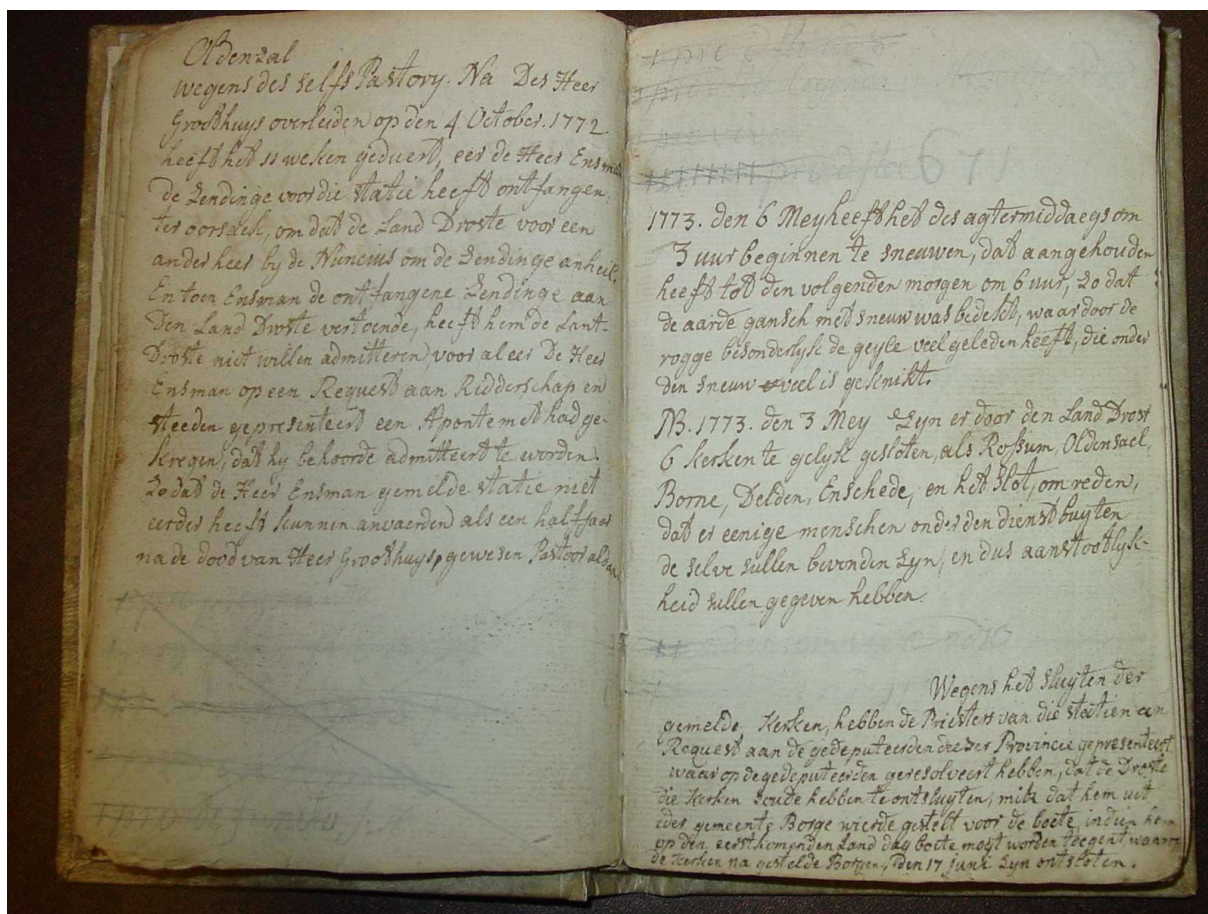 Oldenzal
wegens des selfs Pastory. Na Des Heer
Groothuys overleiden op den 4 October. 1772
heeft het 11 weken geduert, eer de Heer Ensman
de Zendinge voor die statie heeft ontfangen,
ter oorsaek, om dat de Land Droste voor een
ander heer by de Nuncius om de Zendinge anheil.
En toen Ensman de ontfangene Zendinge aan
Den Land Droste vertoende, heeft hem de Lant-
Droste niet willen admitteren, voor al eer De Heer
Ensman op een Request aan Ridderschap en
steeden gepresenteert een Apontement had ge-
kregen, dat hy behoorde admitteert te worden.
Zodat de Heer Ensman gemelde statie niet
eerder heeft kunnen anvaerden als een half jaar
na de dood van Heer Groothuys, gewesen Pastoor aldaar
671
1773. den 6 Mey heeft het des agtermiddaegs om
3 uur beginnen te sneuwen, dat aangehouden
heeft tot den volgenden morgen om 6 uur, zo dat
de aarde gansch met sneuw was bedekt, waar door de
rogge besonderlyk de geyle veel geleden heeft, die onder
den sneuw veel is geknikt.
NB. 1773. den 3 Mey Zyn er door den Land Drost
6 Kerken te gelyk gesloten, als Rossum, Oldensael,
Borne, Delden, Enschede, en het Slot, om reden,
dat er eenige menschen onder den dienst buyten
de selve sullen bevonden zyn, en dus aanstootlyk-
heid sullen gegeven hebben.
Wegens het sluyten der
gemelde Kerken, hebben de Priesters van die statien een
Request aan de gedeputeerden deeser Provincie gepresenteert
waar op de gedeputeerden geresolveert hebben, dat de Droste
die Kerken soude hebben te ontsluyten, mits dat hem uit
ider gemeente Borge wierde gestelt voor de boete, indien hem
op den eerstkomenden Land dag boete mogt worden toegent, waarop
de Kerken na gestelde Borgen, den 17 Juni zyn ontsloten.